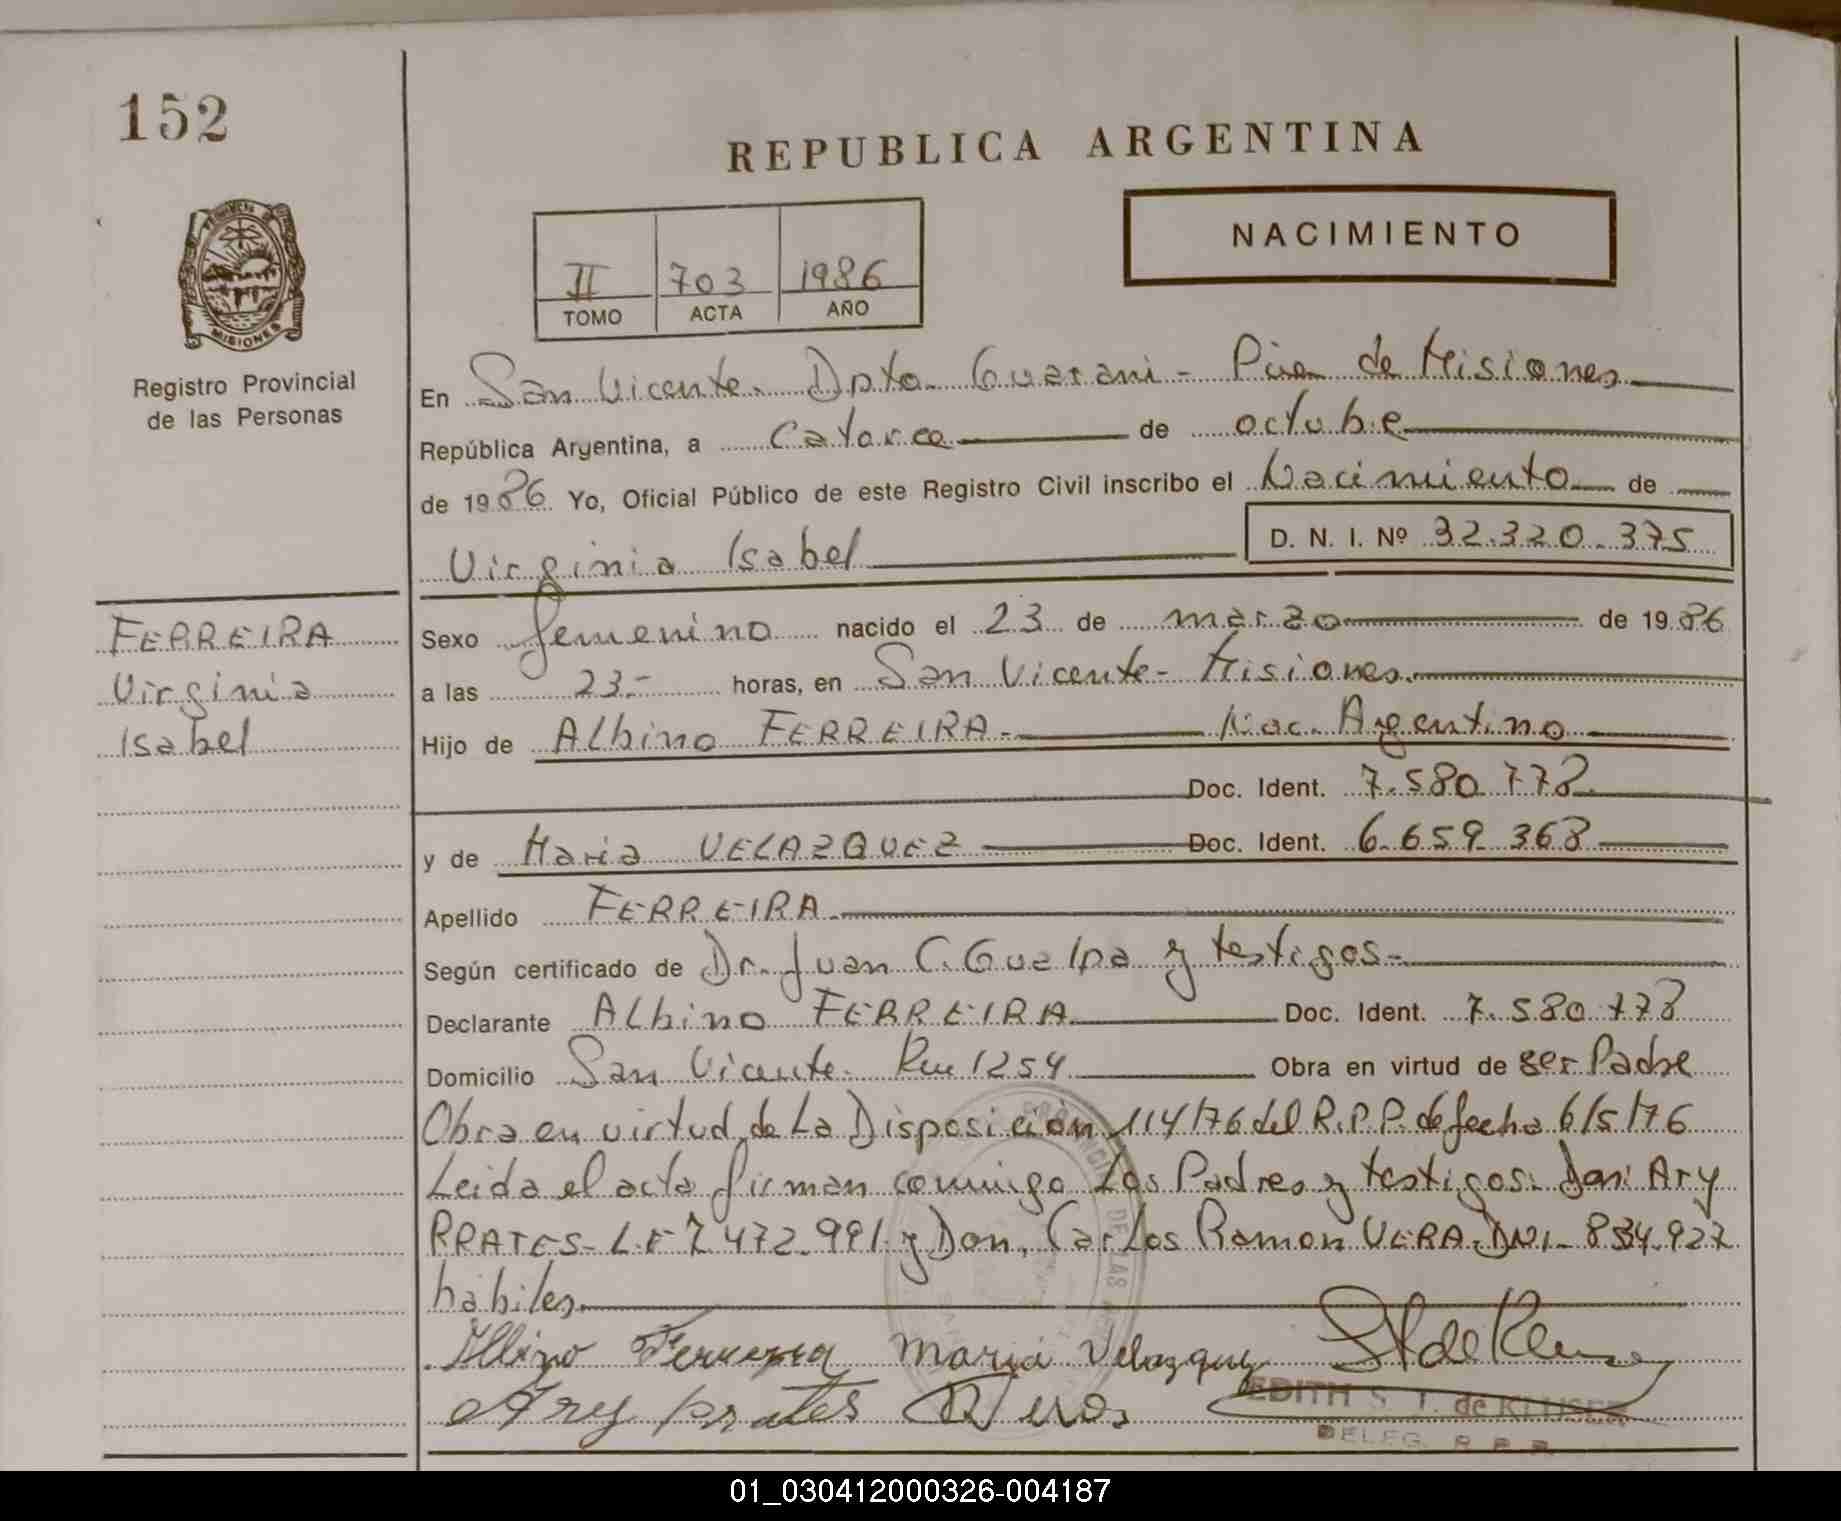 152
REPUBLICA ARGENTINA
NACIMIENTO
II 703 1986
TOMO ACTA AÑO
MISIONES
Registro Provincial
de las Personas
En San Vicente. Dpto. Guarani - Pcia de Misiones
República Argentina, a Catorce de octubre
de 1986 Yo, Oficial Público de este Registro Civil inscribo el Nacimiento de
D. N. I. Nº 32.320.375
Virginia Isabel
FERREIRA
Virginia
Isabel
Sexo femenino nacido el 23 de marzo de 1986
a las 23.- horas, en San Vicente - Misiones.
Hijo de Albino FERREIRA.- Nac. Argentino
Doc. Ident. 7.580.778
y de Maria VELAZQUEZ Doc. Ident. 6.659.368
Apellido FERREIRA.
Según certificado de Dr. Juan C. Guelpa y testigos.-
Declarante Albino FERREIRA Doc. Ident. 7.580.778
Domicilio San Vicente. Km 1254 Obra en virtud de ser Padre
Obra en virtud de La Disposición 114/76 del R.P.P. de fecha 6/5/76
Leida el acta firman conmigo Los Padres y testigos: Don: Ary
PRATES - L.E 7.472.991 y Don. Carlos Ramon VERA. DNI - 8.34.927
habiles.
Albino Ferreira Maria Velazquez
Ary prates Vera
EDITH S. T. de KLUSER
DELEG. R. P. P.
01_030412000326-004187